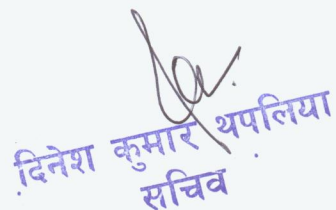 दिनेश कुमार थपलिया
सचिव